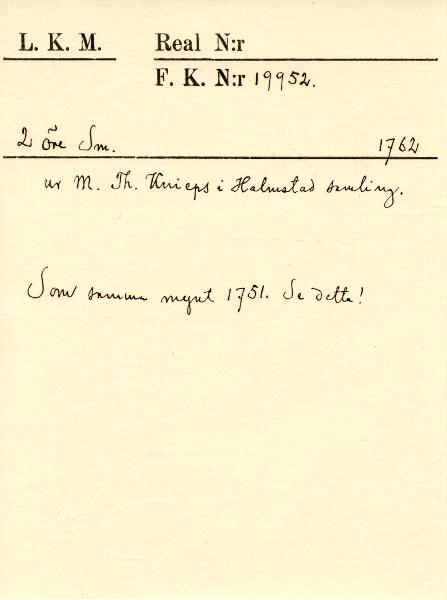 L. K. M. Real N:r
F. K. N:r 19952.
2 öre Sm. 1762
ur M. Th. Knieps i Halmstad samling.
Som samma mynt 1751. Se detta!